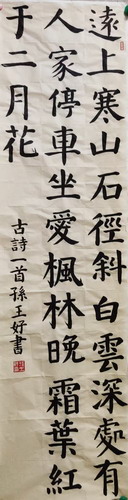 遠上寒山石徑斜白雲深處有
人家停車坐愛楓林晚霜葉紅
于二月花
古詩一首孫王好書